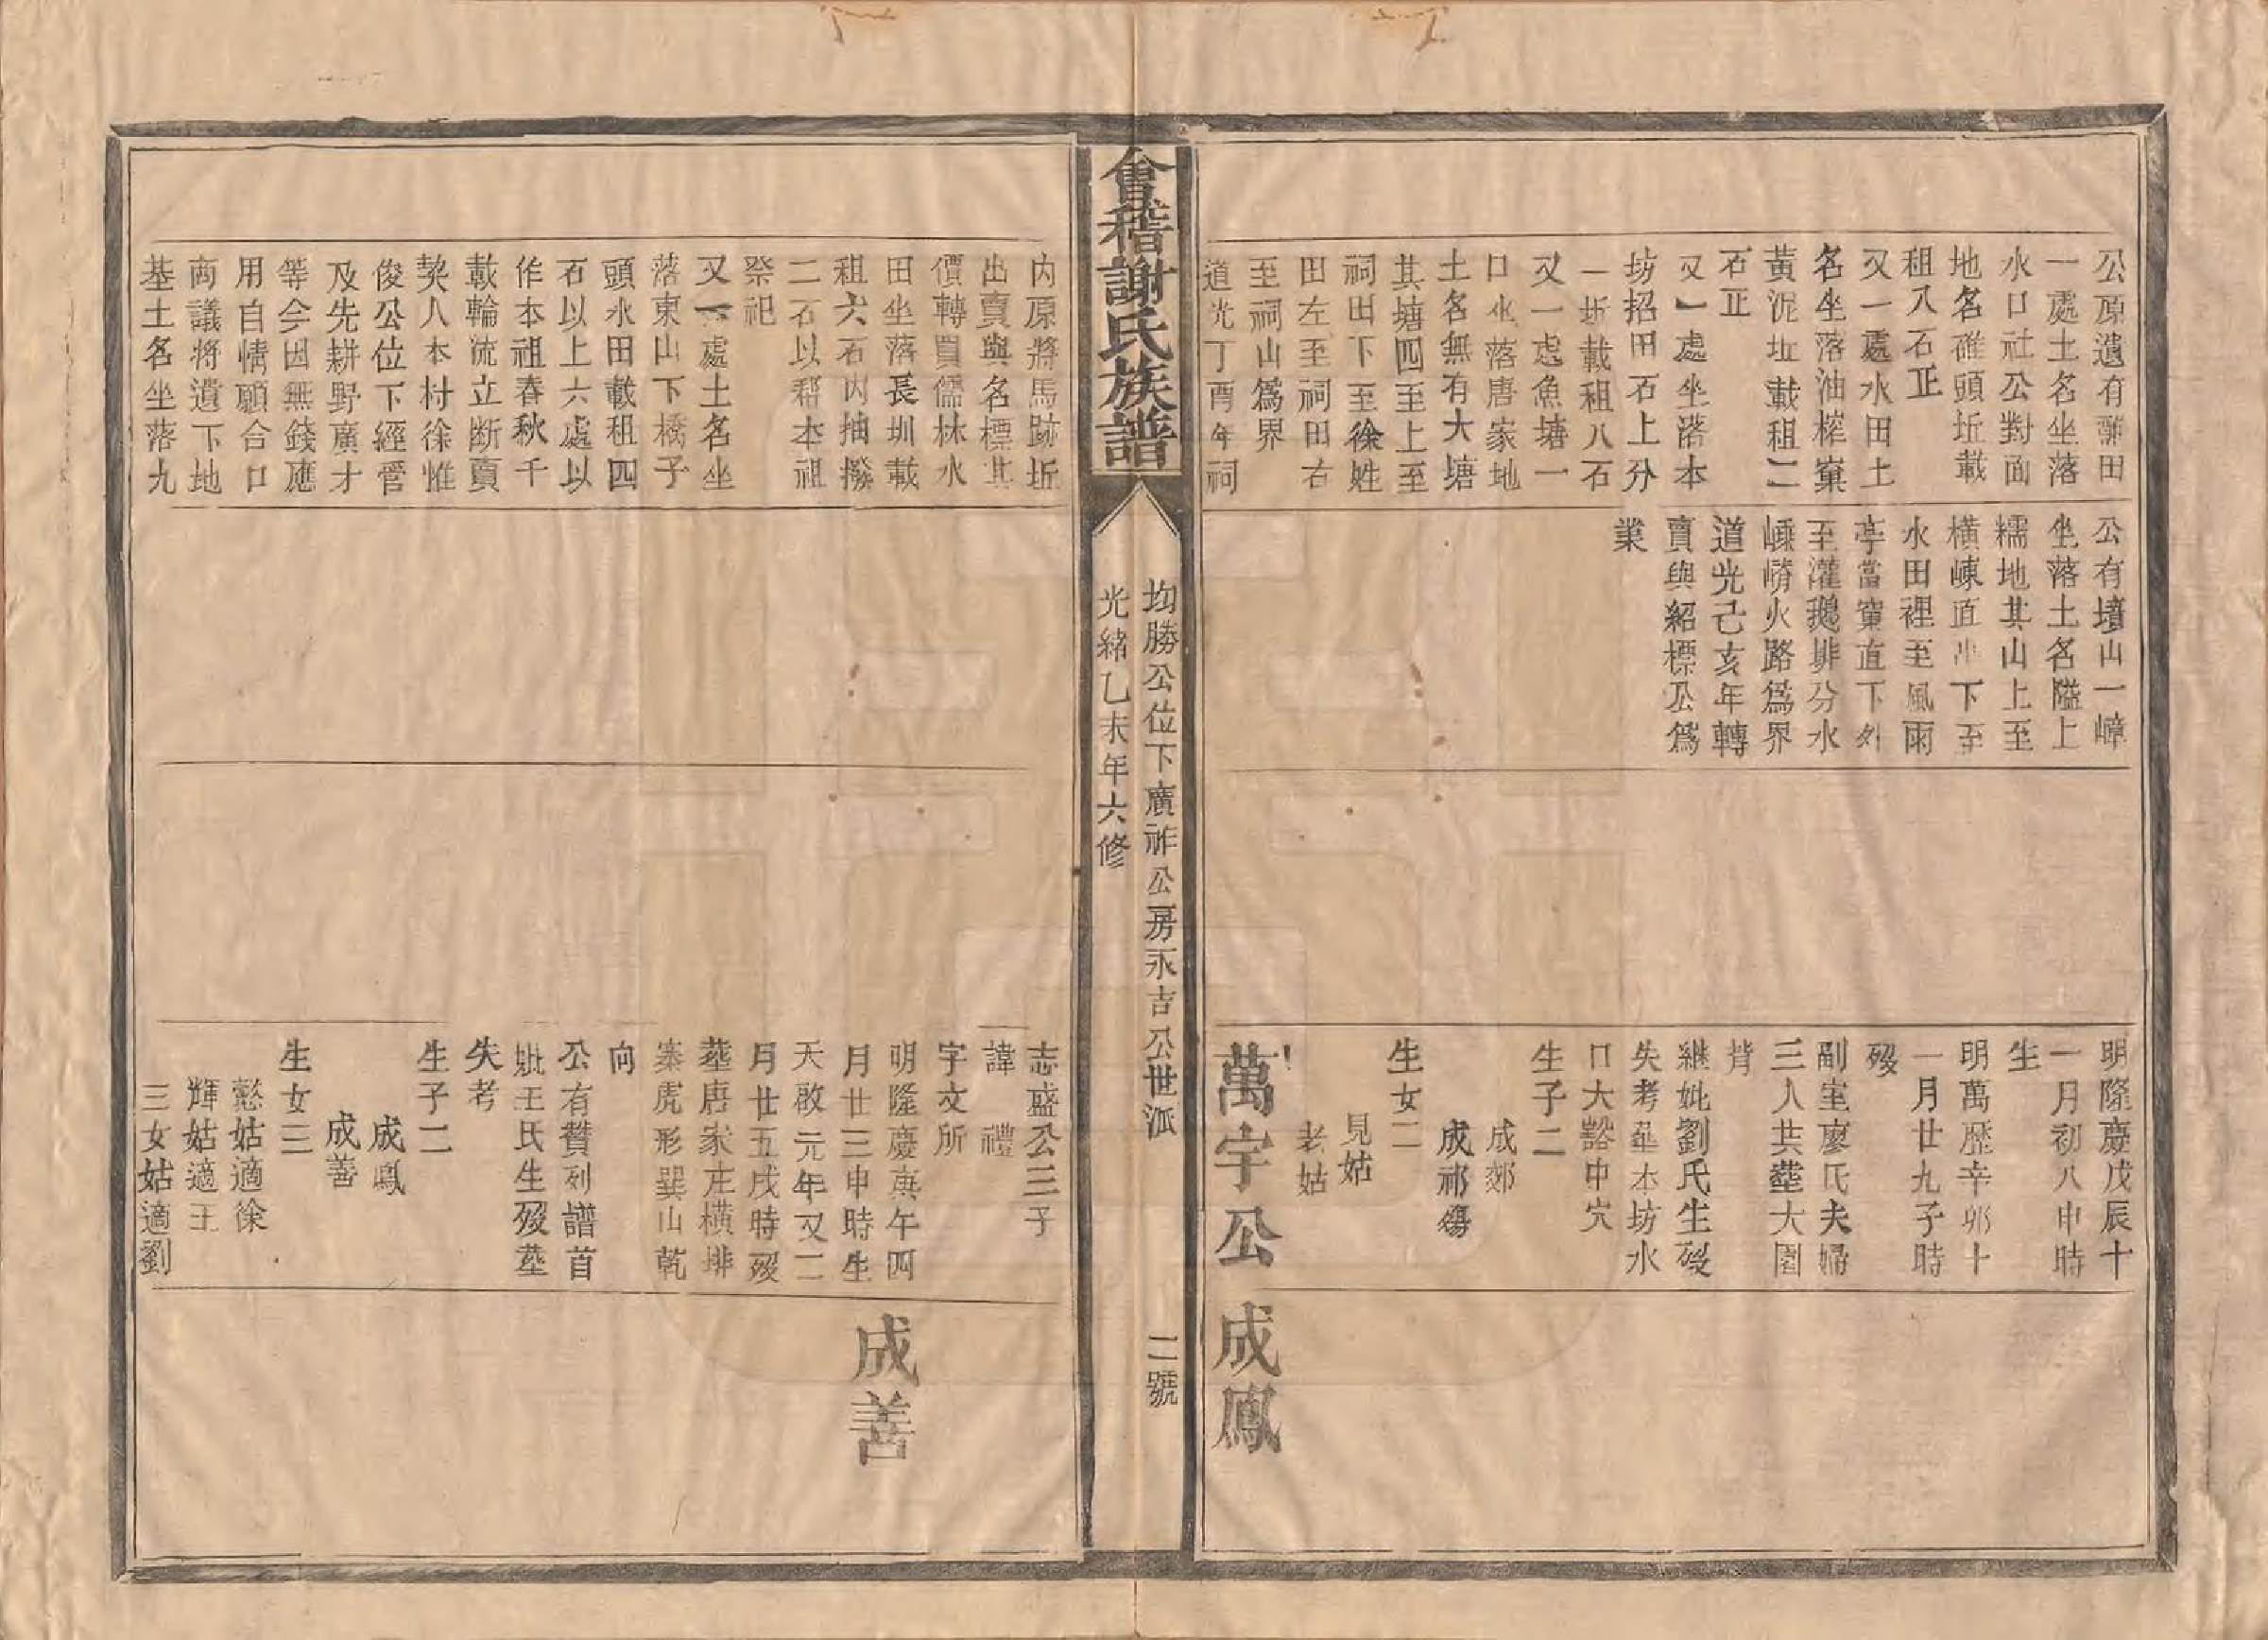 公原遺有蘸田
一處土名坐落
水口社公對面
地名碓頭坵載
租八石正
又一處水田土
名坐落油榨窠
黃泥坵載租二
石正
又一處坐落本
坊招田石上分
一坵載租八石
又一處魚塘一
口坐落唐家地
土名無有大塘
其塘四至上至
祠田下至徐姓
田左至祠田右
至祠山爲界
道光丁酉年祠
公有墳山一嶂
坐落土名隘上
糯地其山上至
橫崠直出下至
水田裡至風雨
亭當窠直下外
至灌鵝排分水
嵊嵴火路爲界
道光己亥年轉
賣與紹標公爲
業
明隆慶戊辰十
一月初八申時
生
明萬歷辛卯十
一月廿九子時
歿
副室廖氏夫婦
三人共塟大園
背
継妣劉氏生歿
失考塟本坊水
口大谿中穴
生子二
成郊
成祁 殤
生女二
見姑
老姑
萬宇公
成鳳
會稽謝氏族譜
均勝公位下廣祚公房永吉公世派
二號
光緒乙未年六修
內原將馬跡坵
出賣與名標其
價轉買儒林水
田坐落長圳載
租六石內抽撥
二石以帮本祖
祭祀
又一處土名坐
落東山下橋子
頭水田載租四
石以上六處以
作本祖春秋千
載輪流立断賣
契人本村徐惟
俊公位下經管
及先耕野廣才
等今因無錢應
用自情願合口
商議將遺下地
基土名坐落九
志盛公三子
諱禮
字文所
明隆慶庚午四
月廿三申時生
天啟元年又二
月廿五戌時歿
塟唐家庄橫排
寨虎形巽山乾
向
公有贊列譜首
妣王氏生歿塟
失考
生子二
成鳳
成善
生女三
懿姑適徐
輝姑適王
三女姑適劉
成善